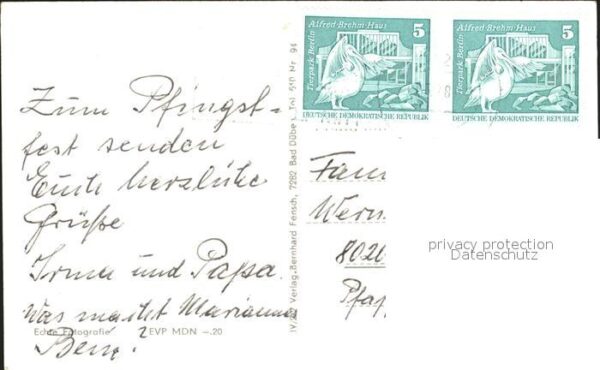 Zum Pfingst-
fest senden
Euch herzliche
Grüße
Irma und Papa.
Was macht Mariannes
Bein?
Echte Fotografie EVP MDN -.20
Verlag „Bernhard Fensch, 7282 Bad Düben, Tel. 510 Nr. 94
Alfred-Brehm-Haus 5
Tierpark Berlin
DEUTSCHE DEMOKRATISCHE REPUBLIK
Alfred-Brehm-Haus 5
Tierpark Berlin
DEUTSCHE DEMOKRATISCHE REPUBLIK
Fam
Wern
8020
Pfap
privacy protection
Datenschutz